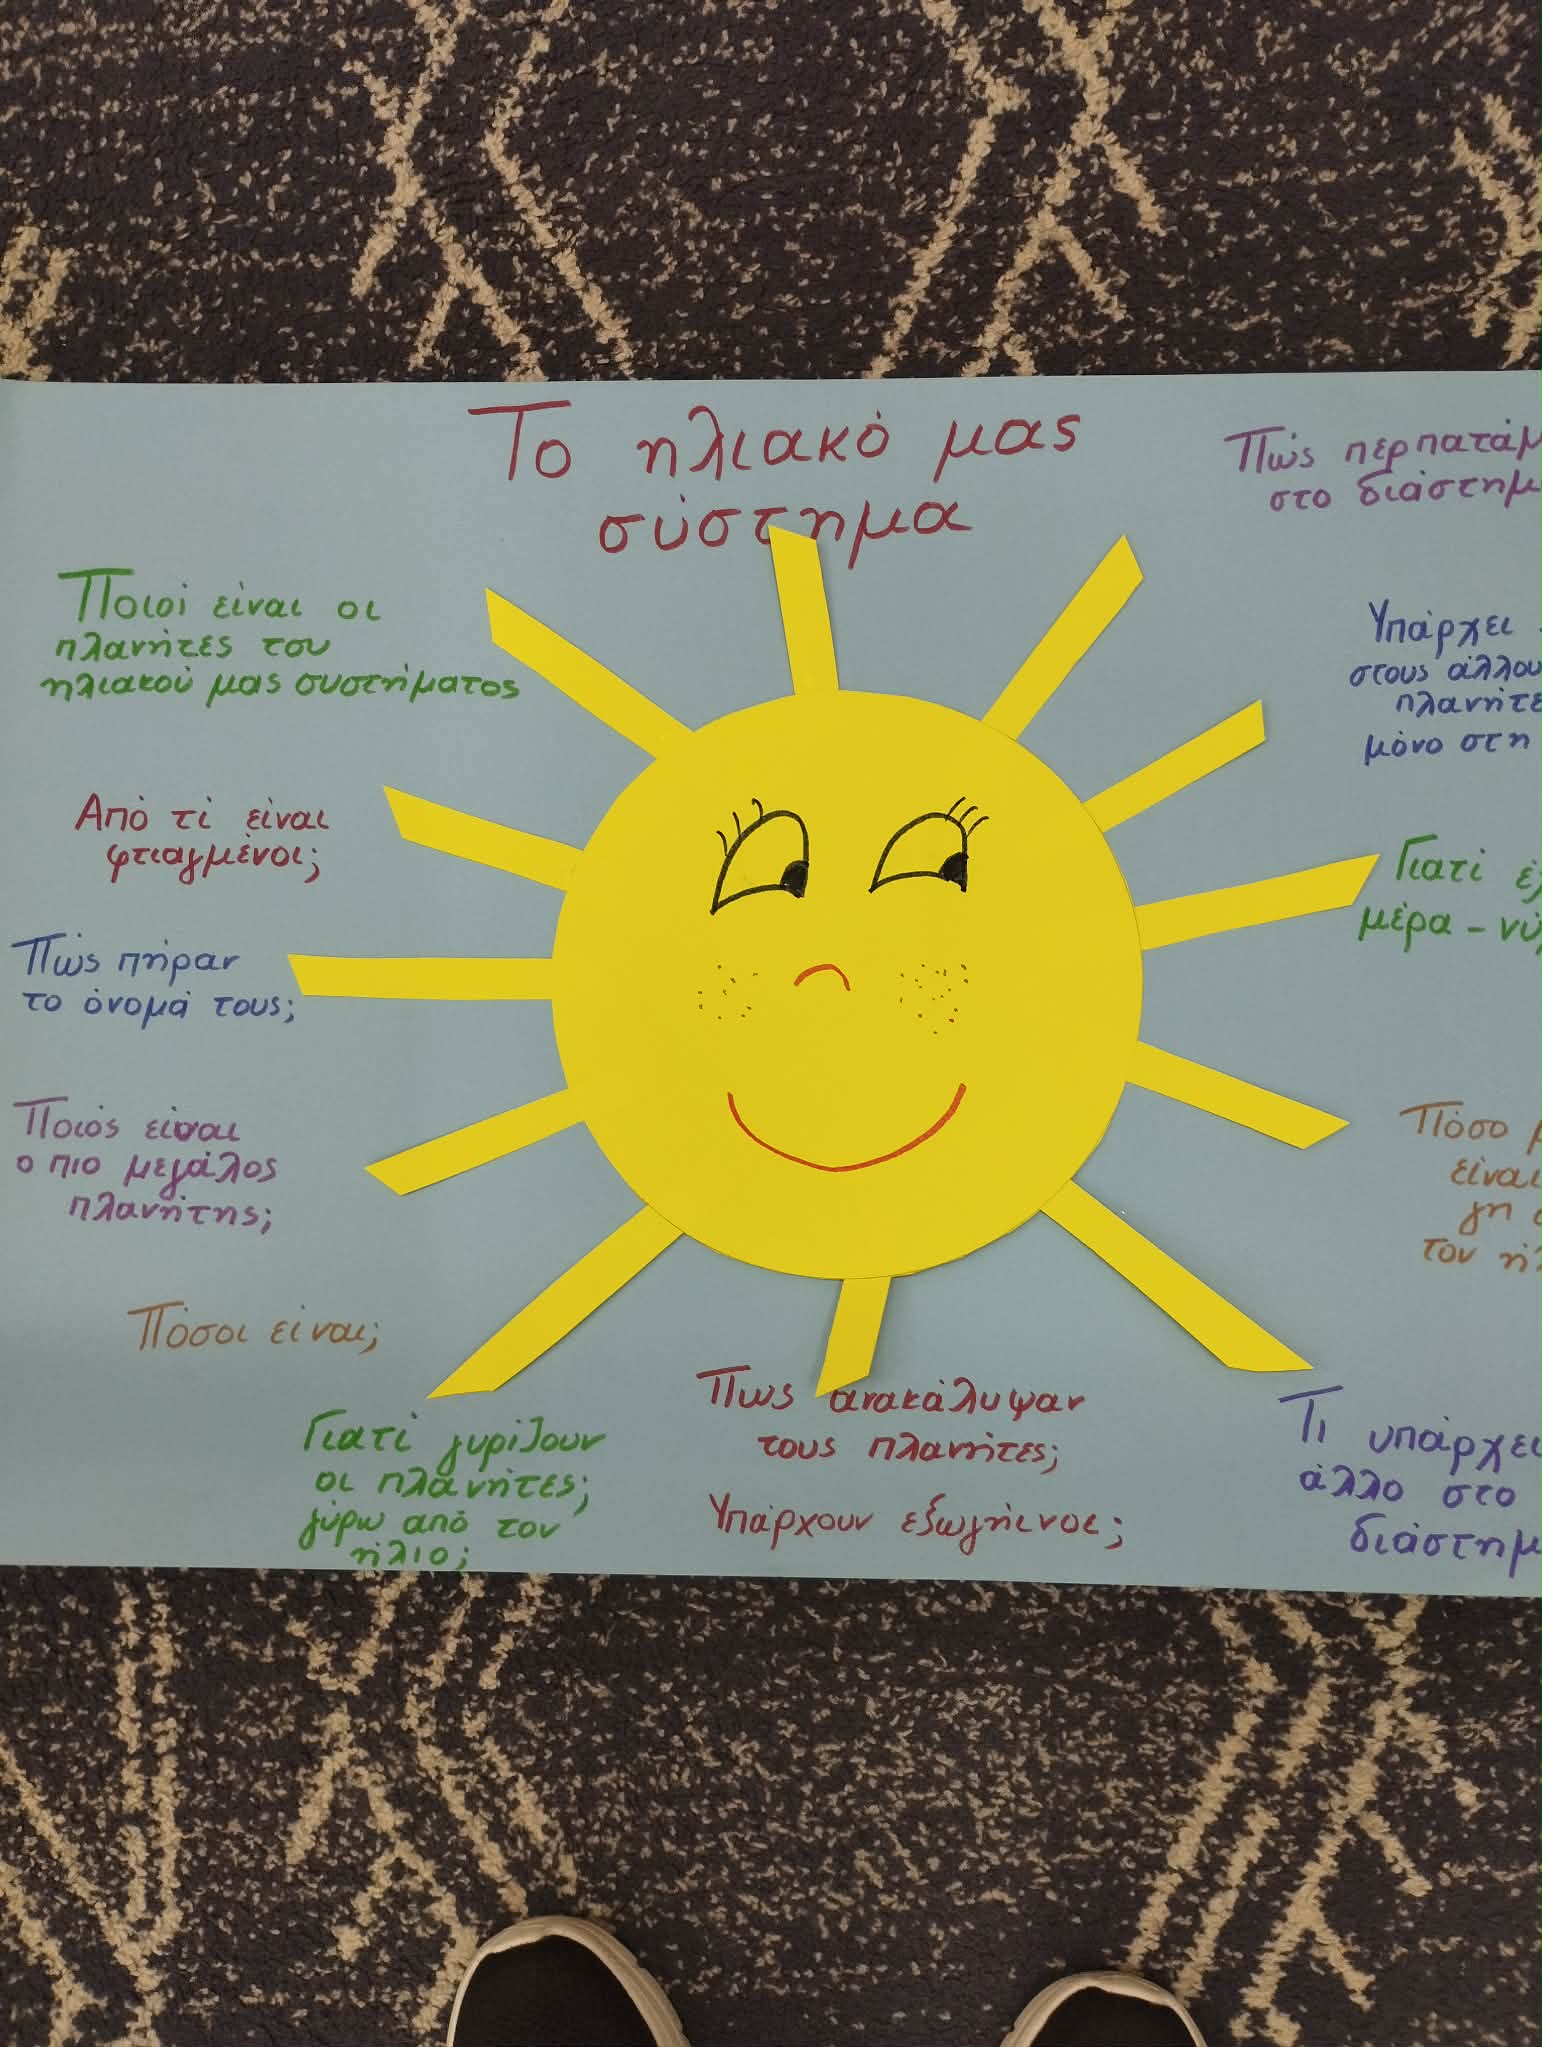 Το ηλιακό μας
σύστημα
Ποιοί είναι οι
πλανήτες του
ηλιακού μας συστήματος
Από τί είναι
φτιαγμένοι;
Πώς πήραν
το όνομά τους;
Ποιός είναι
ο πιο μεγάλος
πλανήτης;
Πόσοι είναι;
Γιατί γυρίζουν
οι πλανήτες;
γύρω από τον
ήλιο;
Πως ανακάλυψαν
τους πλανήτες;
Υπάρχουν εξωγήινοι;
Πώς
στο
Υπάρχει
στους
μόνο στη
Γιατί
μέρα - 
Πόσο
είναι
γη
τον
Τι υπάρχει
άλλο στο